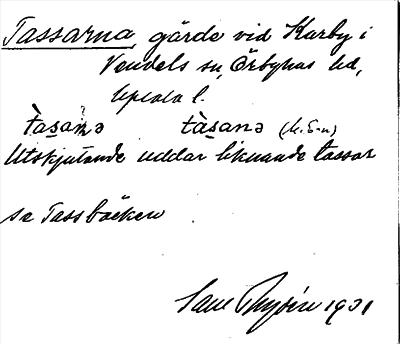 Tassarna, gärde vid Karby i
Vendels sn, Örbyhus hd,
Upsala l.
tas̱anə tàs̱anə (K.G-n)
Utskjutande uddar liknande tassar
se Tassbäcken
1931